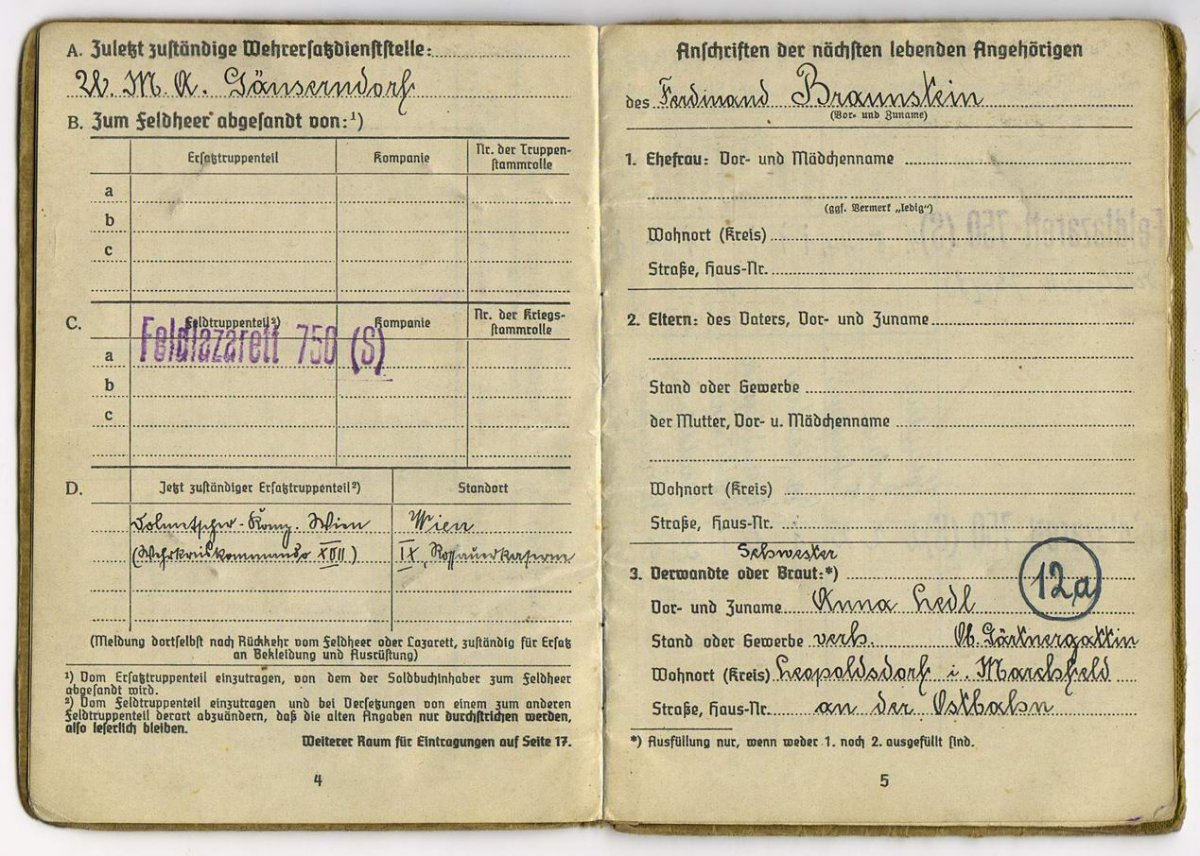 A. Zuletzt zuständige Wehrersatzdienststelle:
W. M. A. Gänserndorf
B. Zum Feldheer abgesandt von:¹)
Ersatztruppenteil Kompanie Nr. der Truppen-
stammrolle
a
b
c
C. Feldtruppenteil²) Kompanie Nr. der Kriegs-
stammrolle
a Feldlazarett 750 (S)
b
c
D. Jetzt zuständiger Ersatztruppenteil²) Standort
Dolmetscher-Komp. Wien Wien
(Wehrkreiskommando XVII) IX, Rossauerkaserne
(Meldung dortselbst nach Rückkehr vom Feldheer oder Lazarett, zuständig für Ersatz
an Bekleidung und Ausrüstung)
¹) Vom Ersatztruppenteil einzutragen, von dem der Soldbuchinhaber zum Feldheer
abgesandt wird.
²) Vom Feldtruppenteil einzutragen und bei Versetzungen von einem zum anderen
Feldtruppenteil derart abzuändern, daß die alten Angaben nur durchstrichen werden,
also leserlich bleiben.
Weiterer Raum für Eintragungen auf Seite 17.
4
Anschriften der nächsten lebenden Angehörigen
des Ferdinand Braunstein
(Vor- und Zuname)
1. Ehefrau: Vor- und Mädchenname
(ggf. Vermerk „ledig“)
Wohnort (Kreis)
Straße, Haus-Nr.
2. Eltern: des Vaters, Vor- und Zuname
Stand oder Gewerbe
der Mutter, Vor- u. Mädchenname
Wohnort (Kreis)
Straße, Haus-Nr.
Schwester
3. Verwandte oder Braut:*)
12a
Vor- und Zuname Anna Ledl
Stand oder Gewerbe verh. Ob. Gärtnergattin
Wohnort (Kreis) Leopoldsdorf i. Marchfeld
Straße, Haus-Nr. an der Ostbahn
*) Ausfüllung nur, wenn weder 1. noch 2. ausgefüllt sind.
5